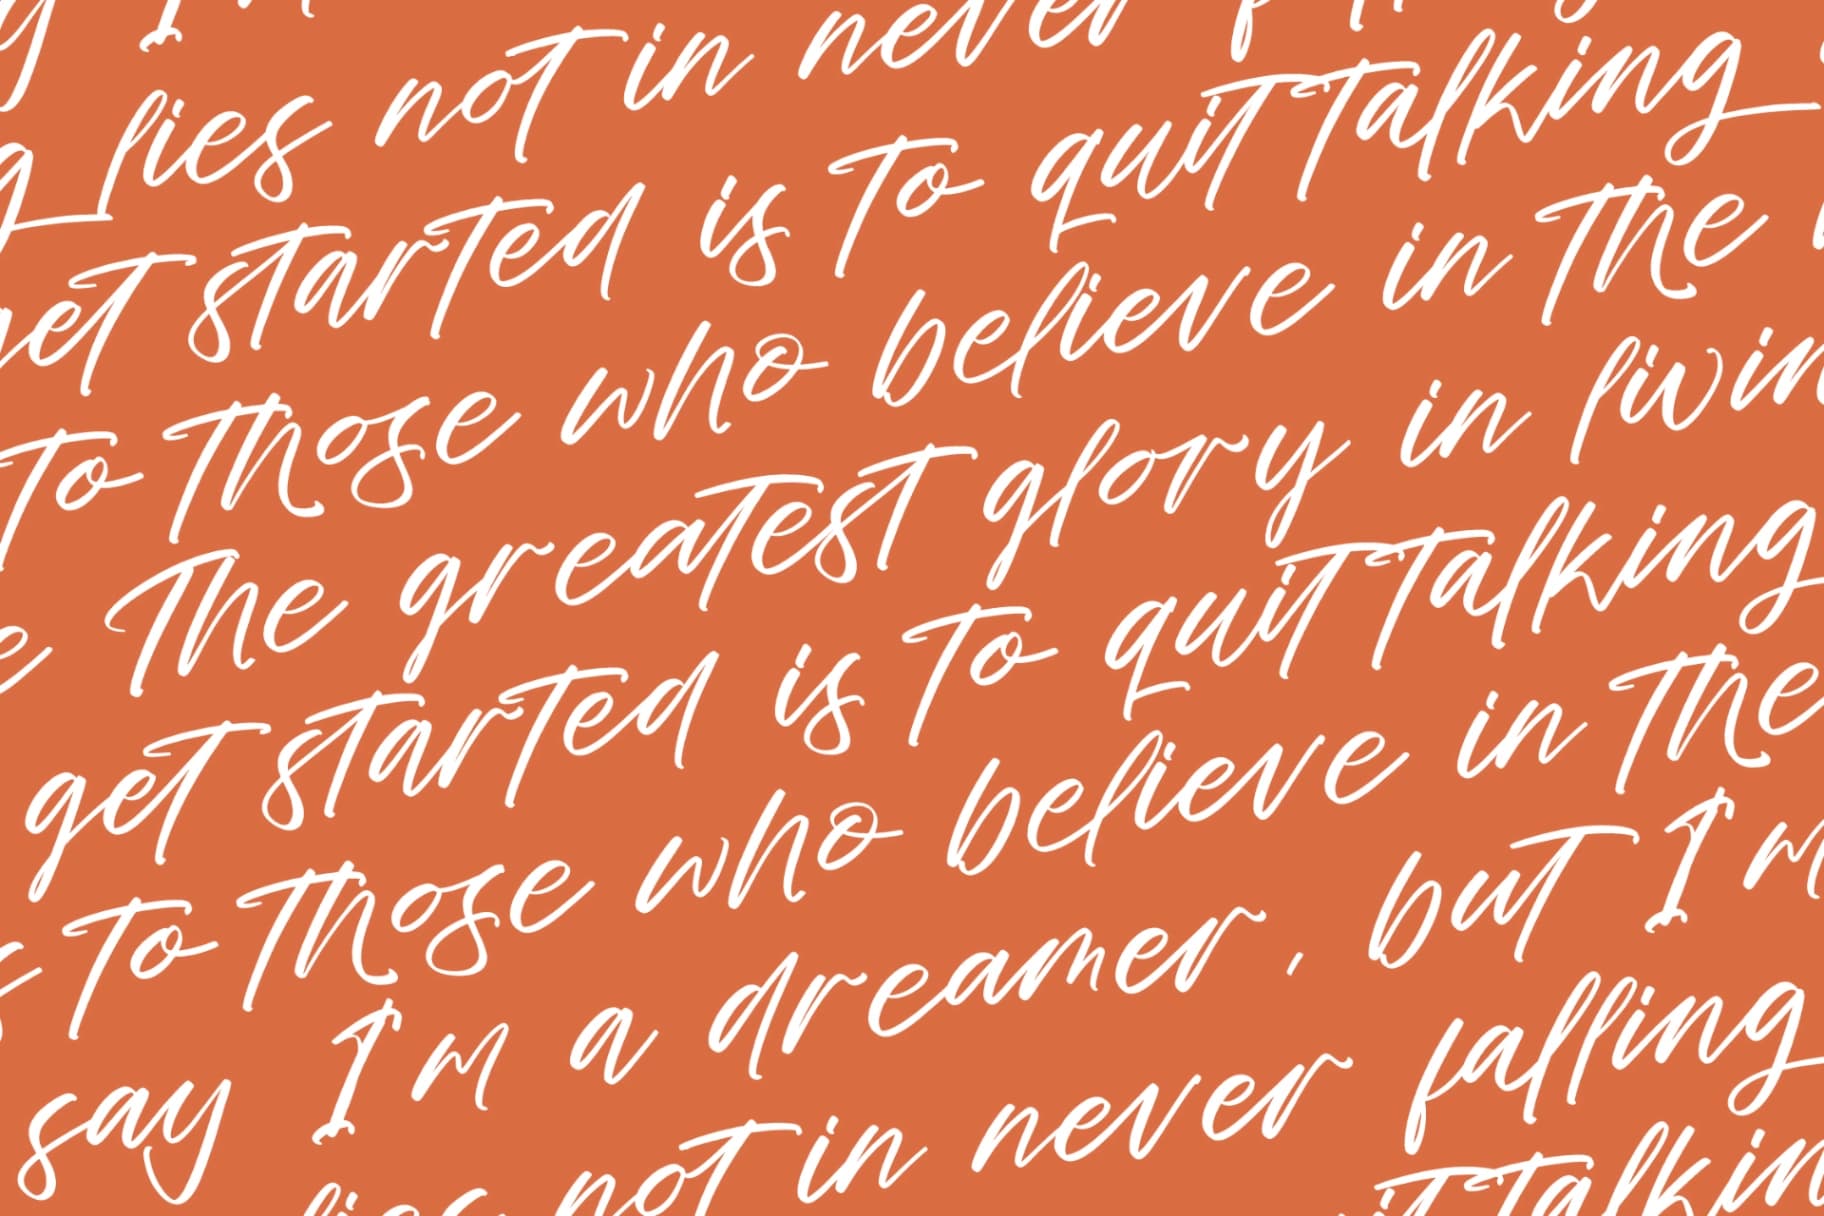 lies not in never
get started is to quit talking
to those who believe in the
The greatest glory in livin
get started is to quit talking
to those who believe in the
say I'm a dreamer, but I'm
lies not in never falling
talkin